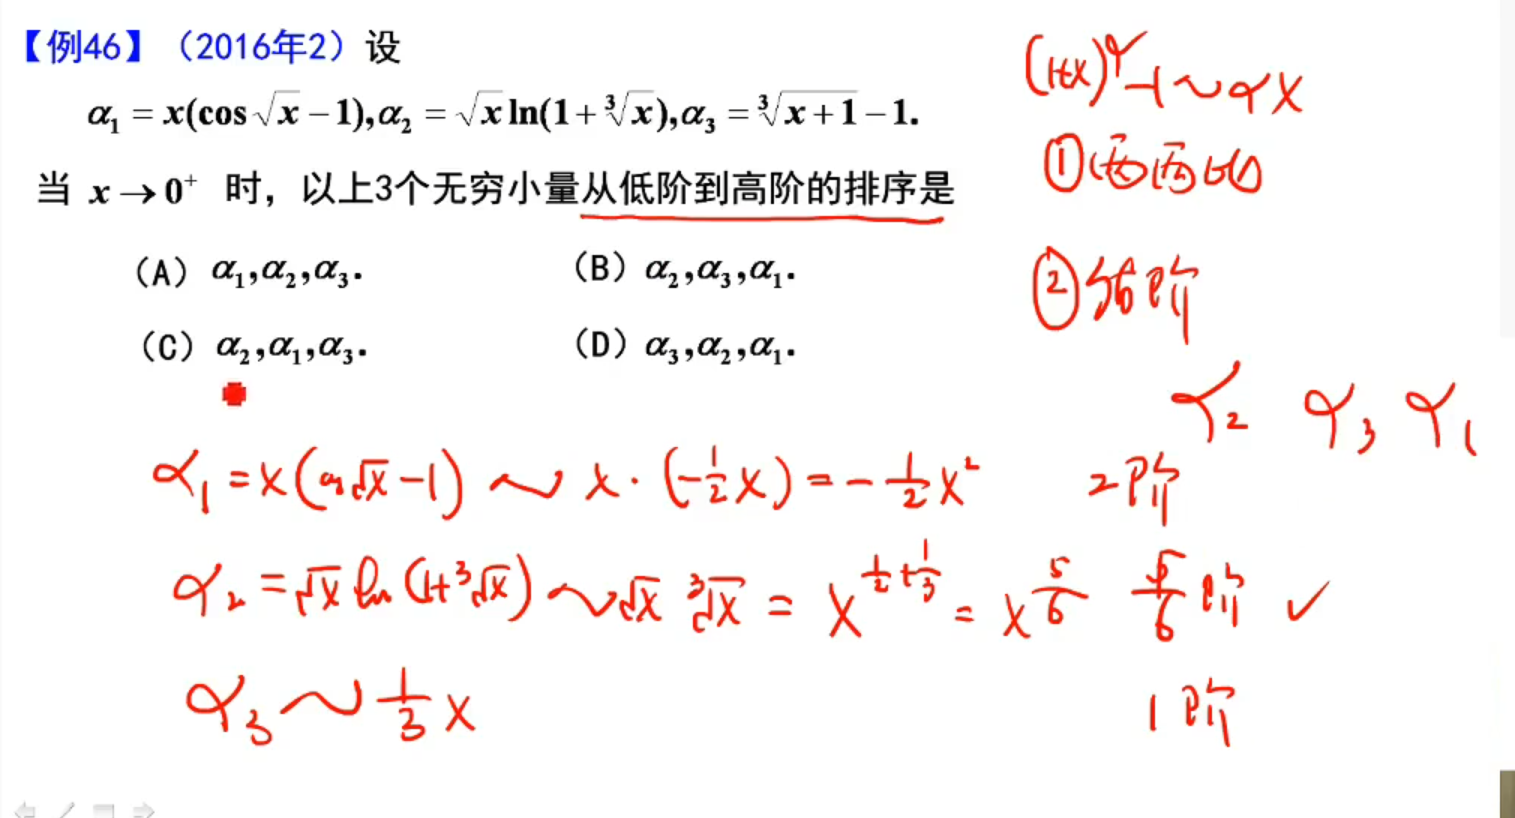 【例46】（2016年2）设
α₁ = x(cos√x − 1), α₂ = √x ln(1 + ∛x), α₃ = ∛(x+1) − 1.
当 x → 0⁺ 时，以上3个无穷小量从低阶到高阶的排序是
（A）α₁,α₂,α₃. （B）α₂,α₃,α₁.
（C）α₂,α₁,α₃. （D）α₃,α₂,α₁.
(1+x)^α −1 ~ αx
① 两两比
② 阶
α₂ α₃ α₁
α₁ = x(cos√x − 1) ~ x · (−½x) = −½x² 2阶
α₂ = √x ln(1+∛x) ~ √x ∛x = x^(1/2+1/3) = x^(5/6) 5/6 阶 ✓
α₃ ~ ⅓x 1阶